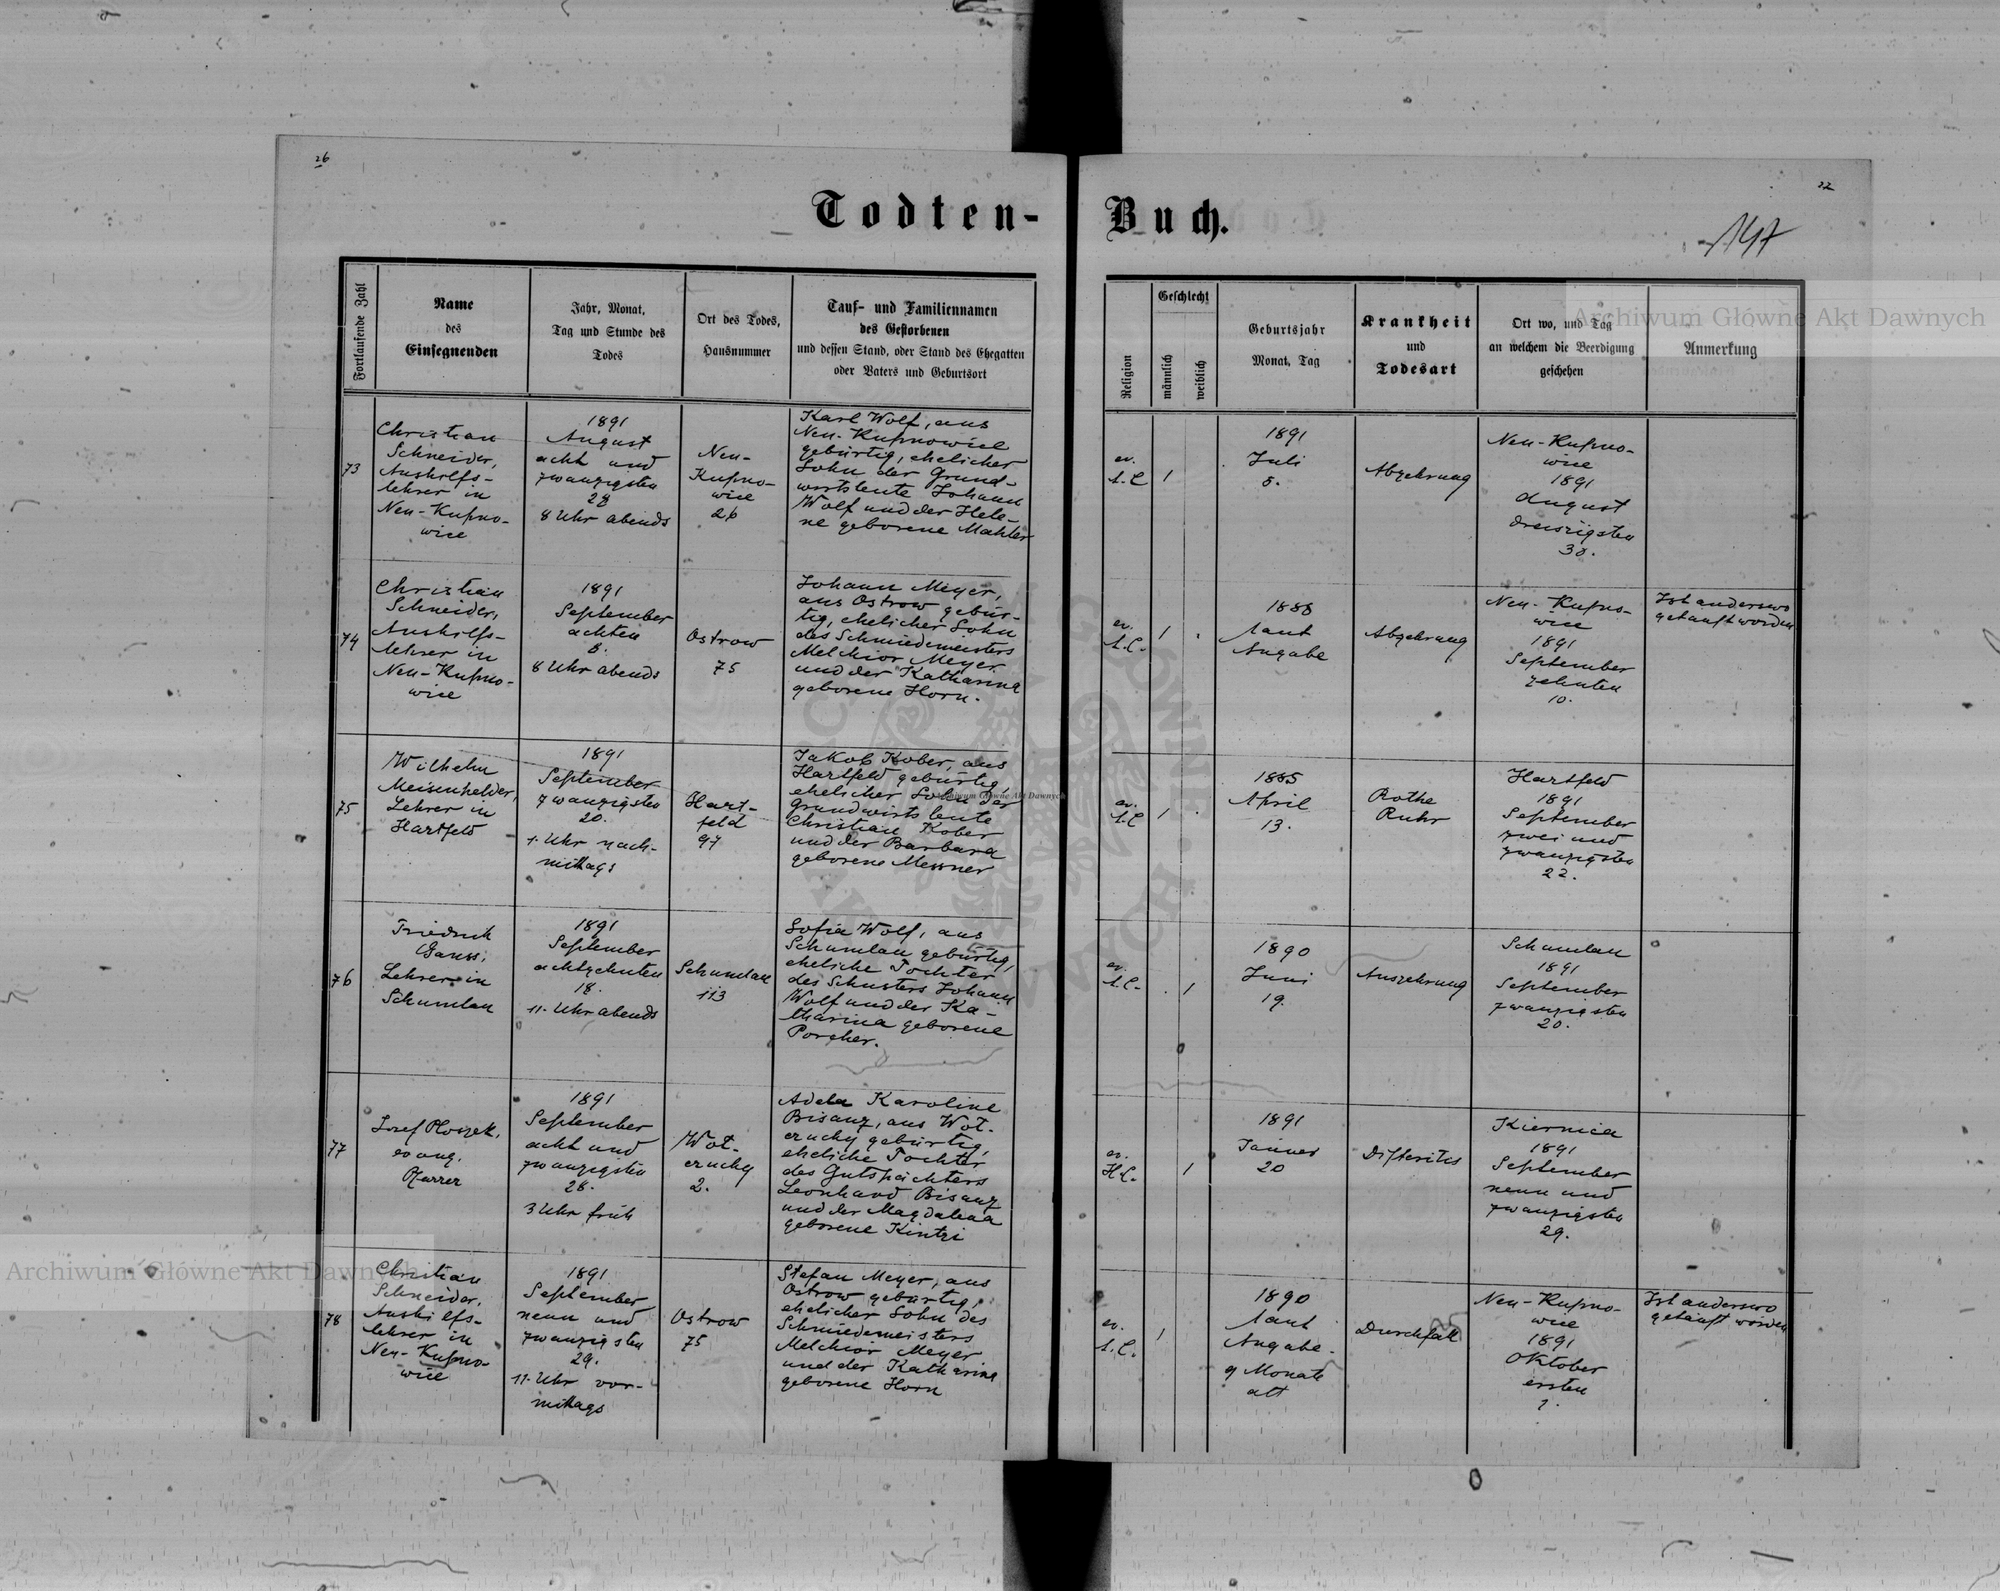 26
27
Todten-Buch.
147
Fortlaufende Zahl
Name
des
Einsegnenden
Jahr, Monat,
Tag und Stunde des
Todes
Ort des Todes,
Hausnummer
Tauf- und Familiennamen
des Gestorbenen
und dessen Stand, oder Stand des Ehegatten
oder Vaters und Geburtsort
Religion
Geschlecht
männlich
weiblich
Geburtsjahr
Monat, Tag
Krankheit
und
Todesart
Ort wo, und Tag
an welchem die Beerdigung
geschehen
Anmerkung
73
Christian
Schneider,
Aushilfs-
lehrer in
Neu-Kupno-
wice
1891
August
acht und
zwanzigsten
28
8 Uhr abends
Neu-
Kupno-
wice
26
Karl Wolf, aus
Neu-Kupnowice
gebürtig, ehelicher
Sohn der Grund-
wirtsleute Johann
Wolf und der Hele-
ne geborene Mahler
ev.
A.C
1
1891
Juli
5.
Abzehrung
Neu-Kupno-
wice
1891
August
dreiszigsten
30.
74
Christian
Schneider,
Aushilfs-
lehrer in
Neu-Kupno-
wice
1891
September
achten
8.
8 Uhr abends
Ostrow
75
Johann Meyer,
aus Ostrow gebür-
tig, ehelicher Sohn
des Schmiedemeisters
Melchior Meyer
und der Katharina
geborene Horn.
ev.
A.C.
1
1888
laut
Angabe
Abzehrung
Neu-Kupno-
wice
1891
September
zehnten
10.
Ist anderswo
getauft worden
75
Wilhelm
Meisenhelder,
Lehrer in
Hartfeld
1891
September
zwanzigsten
20.
1. Uhr nach-
mittags
Hart-
feld
97
Jakob Kober, aus
Hartfeld gebürtig,
ehelicher Sohn der
Grundwirtsleute
Christian Kober
und der Barbara
geborene Messner
ev.
A.C
1
1885
April
13.
Rothe
Ruhr
Hartfeld
1891
September
zwei und
zwanzigsten
22.
76
Friedrich
Gauss,
Lehrer in
Schumlau
1891
September
achtzehnten
18.
11. Uhr abends
Schumlau
113
Sofia Wolf, aus
Schumlau gebürtig,
eheliche Tochter
des Schusters Johann
Wolf und der Ka-
tharina geborene
Porcher.
ev.
A.C.
1
1890
Juni
19.
Auszehrung
Schumlau
1891
September
zwanzigsten
20.
77
Josef Ploszek,
evang.
Pfarrer
1891
September
acht und
zwanzigsten
28.
3 Uhr früh
Wot-
czuchy
2.
Adela Karoline
Bisanz, aus Wot-
czuchy gebürtig,
eheliche Tochter
des Gutspächters
Leonhard Bisanz
und der Magdalena
geborene Kintzi
ev.
H.C.
1
1891
Jänner
20
Difterites
Kiernica
1891
September
neun und
zwanzigsten
29.
78
Christian
Schneider,
Aushilfs-
lehrer in
Neu-Kupno-
wice
1891
September
neun und
zwanzigsten
29.
11. Uhr vor-
mittags
Ostrow
75
Stefan Meyer, aus
Ostrow gebürtig,
ehelicher Sohn des
Schmiedemeisters
Melchior Meyer
und der Katharina
geborene Horn
ev.
A.C.
1
1890
laut
Angabe.
9 Monate
alt
Durchfall
Neu-Kupno-
wice
1891
Oktober
ersten
1.
Ist anderswo
getauft worden
Archiwum Główne Akt Dawnych
Archiwum Główne Akt Dawnych
Archiwum Główne Akt Dawnych